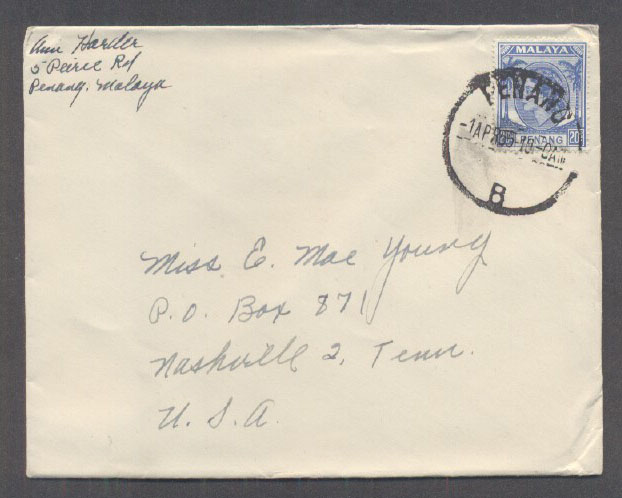 Ann Harder
5 Peirce Rd
Penang. Malaya
MALAYA
PENANG
-1APR
PENANG
20
B
Miss E. Mae Young
P.O. Box 871
Nashville 2, Tenn.
U.S.A.